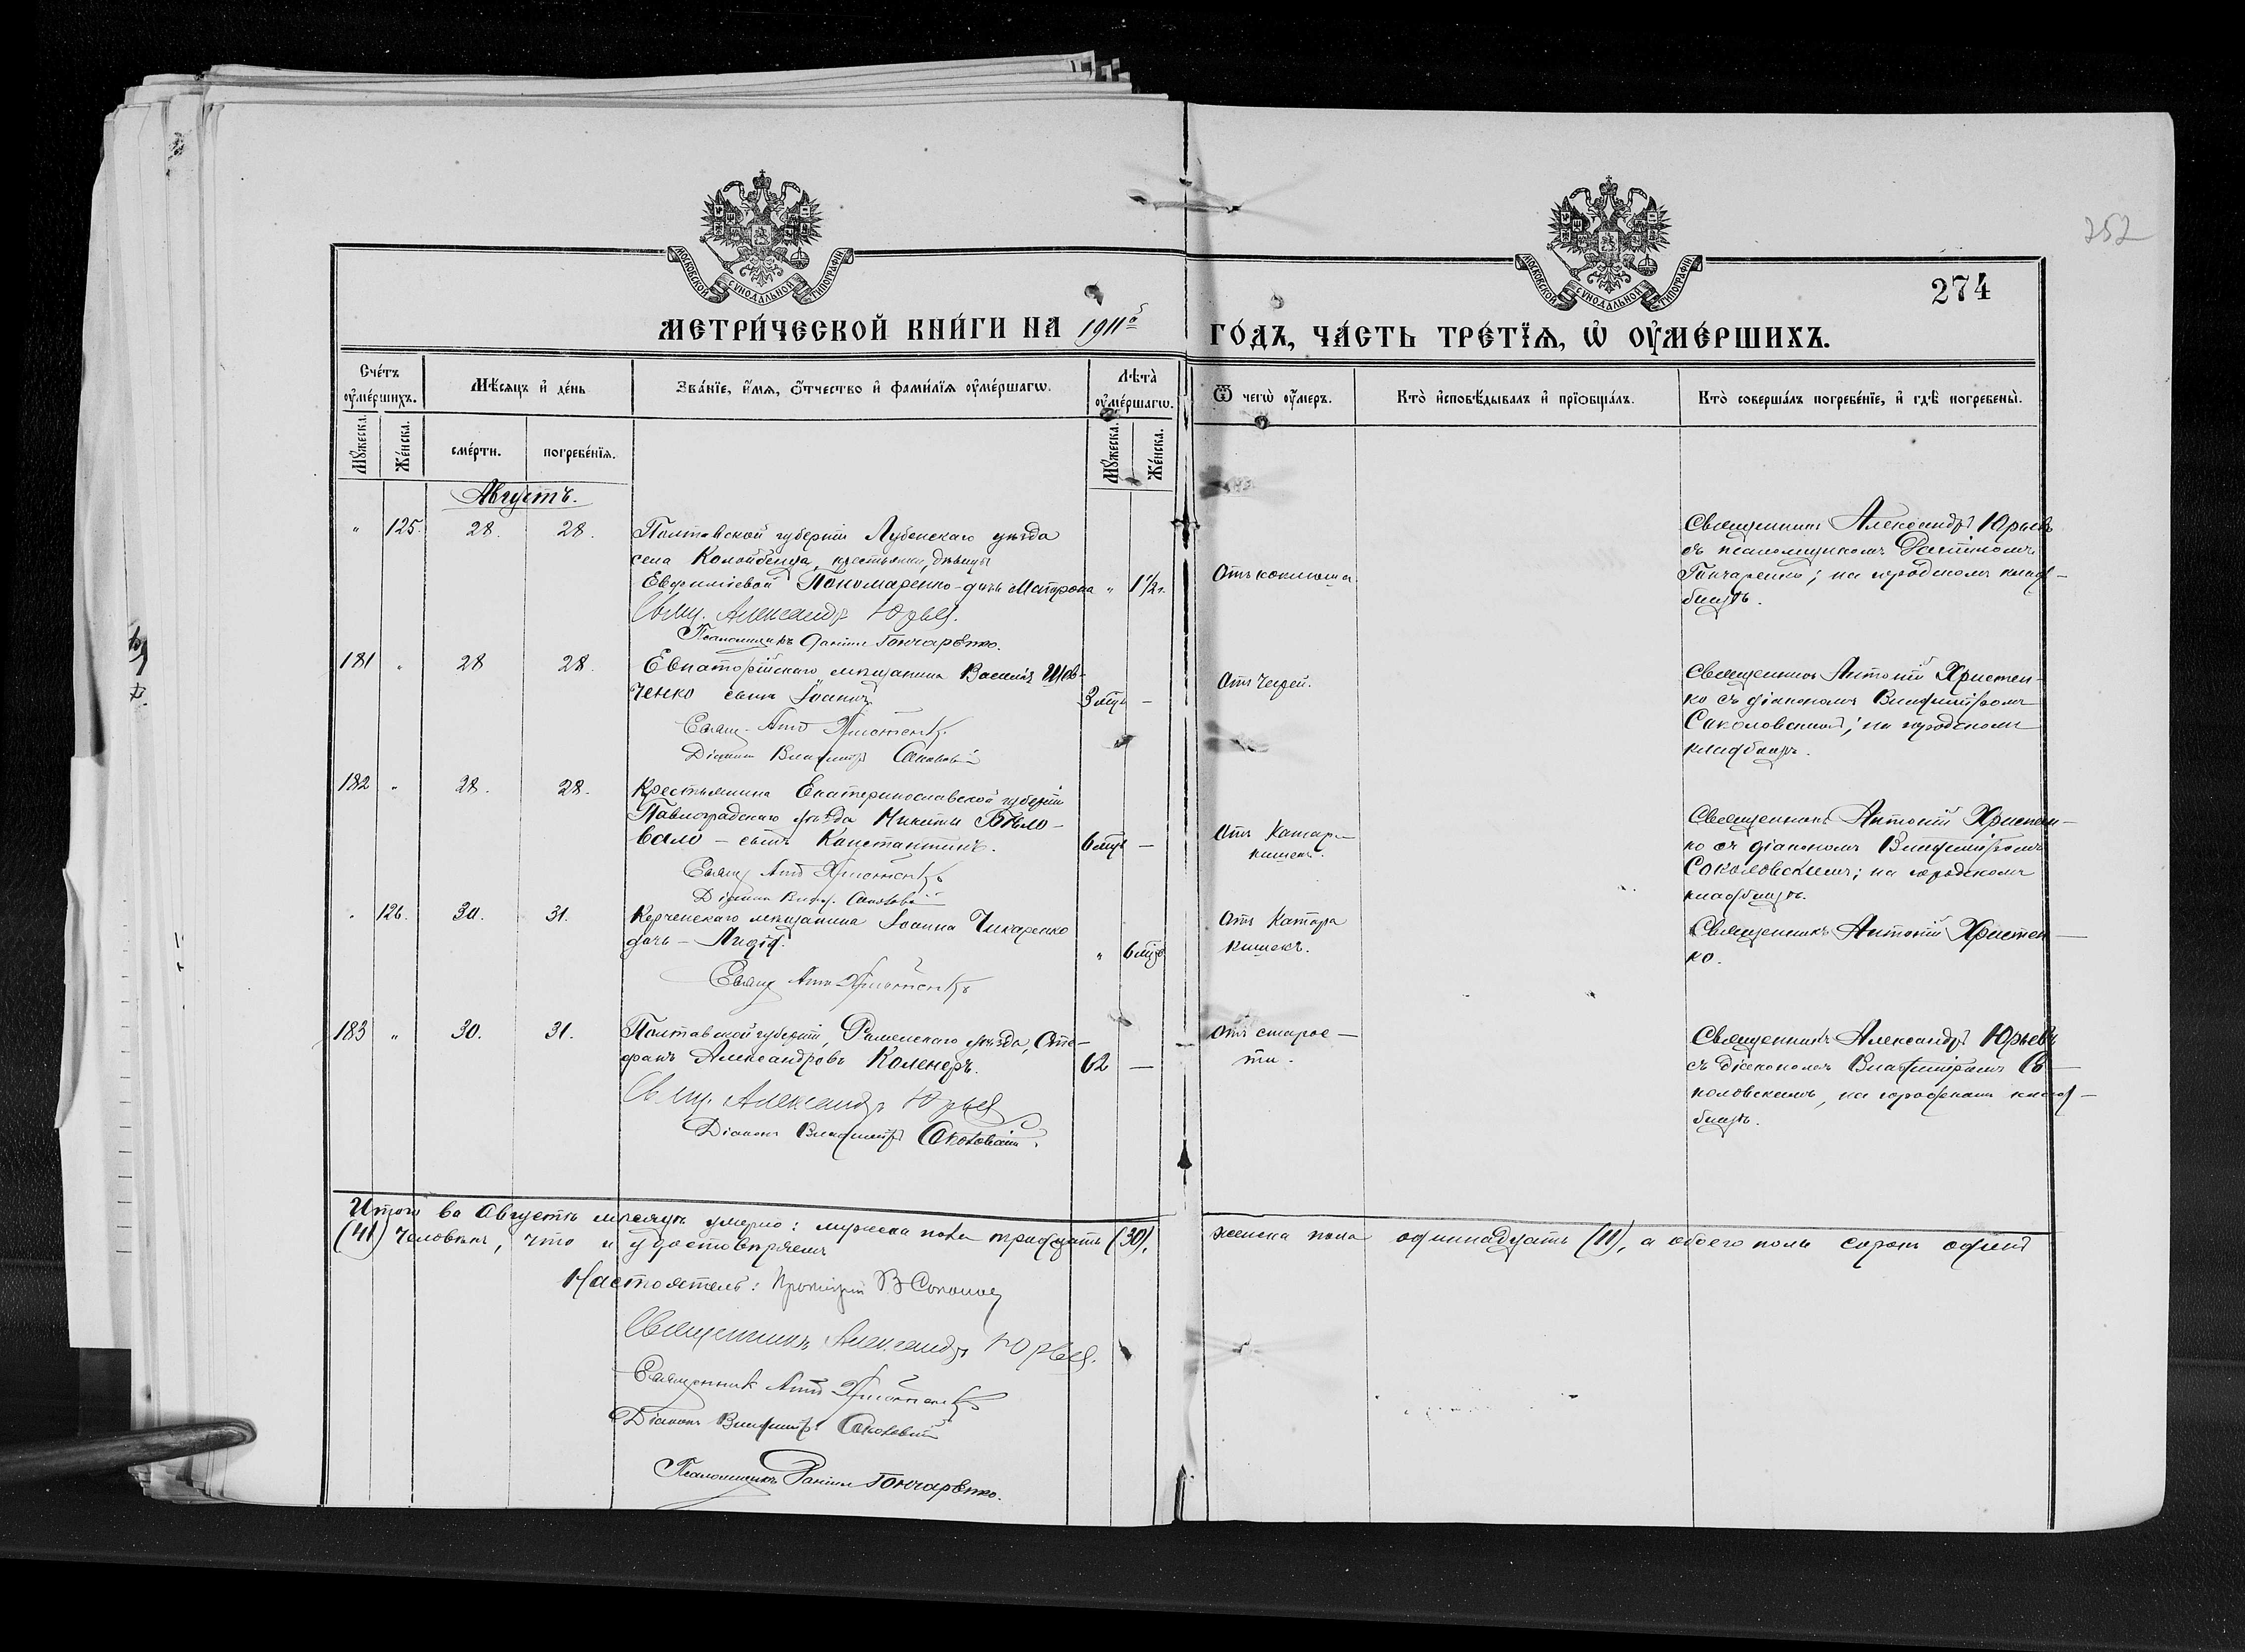 252
274
МОСКОВСКОЙ СѴНОДАЛЬНОЙ ТИПОГРАФІИ
МОСКОВСКОЙ СѴНОДАЛЬНОЙ ТИПОГРАФІИ
МЕТРИ́ЧЕСКОЙ КНИ́ГИ НА 1911й ГО́ДЪ, ЧА́СТЬ ТРЕ́ТЇѦ, Ѡ҆ ОУ҆МЕ́РШИХЪ.
Сче́тъ оу҆ме́ршихъ.
Мѣ́сяцъ и҆ де́нь
Зва́нїе, и҆́мѧ, ѻ҆́тчество и҆ фами́лїѧ оу҆ме́ршагѡ.
Лѣ́та оу҆ме́ршагѡ.
Ѿ чегѡ̀ оу҆́меръ.
Кто̀ и҆сповѣ́дывалъ и҆ прїѡбща́лъ.
Кто̀ соверша́лъ погребе́нїе, и҆ гдѣ̀ погребены̀.
Мꙋ́жеска.
Же́нска.
сме́рти.
погребе́нїѧ.
Мꙋ́жеска.
Же́нска.
Августъ.
" 125. 28. 28. Полтавской губерніи Лубенскаго уѣзда
села крестьянки, дѣвицы
Евфиміевой Пономаренко - дочь Матрона " 1½ г.
Свящ. Александръ Юрьев.
Псаломщикъ Даніилъ Гончаренко.
Отъ коклюша.
Священникъ Александръ Юрьевъ
съ псаломщикомъ Даніиломъ
Гончаренко; на городскомъ клад-
бищѣ.
181 " 28 28. Евпаторійскаго мѣщанина Василія Шев-
ченко сынъ Іоаннъ. 3 мѣс —
Свящ. Ант Христенко.
Діаконъ Владиміръ Соколовскій
Отъ
Священникъ Антоній Христен-
ко съ діакономъ Владиміромъ
Соколовскимъ; на городскомъ
кладбищѣ.
182 " 28. 28. Крестьянина Екатеринославской губерніи
Павлоградскаго уѣзда Никиты Бѣло-
вало - сынъ Константинъ. 6 мѣс —
Свящ Ант Христенко
Діаконъ Влад. Соколовскій
Отъ катара
кишекъ.
Священникъ Антоній Христен-
ко съ діакономъ Владиміромъ
Соколовскимъ; на городскомъ
кладбищѣ.
" 126. 30. 31. Керченскаго мѣщанина Іоанна Чикаренко
дочь - Лидія. " 6 мѣс
Свящ Ант Христенко
Отъ катара
кишекъ.
Священникъ Антоній Христен-
ко.
183 " 30. 31. Полтавской губерніи, Роменскаго уѣзда, Сте-
фанъ Александровъ Коленеръ. 62 —
Свящ. Александръ Юрьев
Діаконъ Владиміръ Соколовскій.
Отъ старос-
ти.
Священникъ Александръ Юрьевъ
съ діакономъ Владиміромъ Со-
коловскимъ, на городскомъ клад-
бищѣ.
Итого въ Августѣ мѣсяцѣ умерло: мужеска пола тридцать (30), женска пола одиннадцать (11), а обоего пола сорокъ одинъ
(41) человѣкъ, что и удостовѣряемъ
Настоятель: Протоіерей В Соколов
Священникъ Александръ Юрьев.
Священник Ант Христенко
Діаконъ Владиміръ Соколовскій
Псаломщикъ Даніилъ Гончаренко.